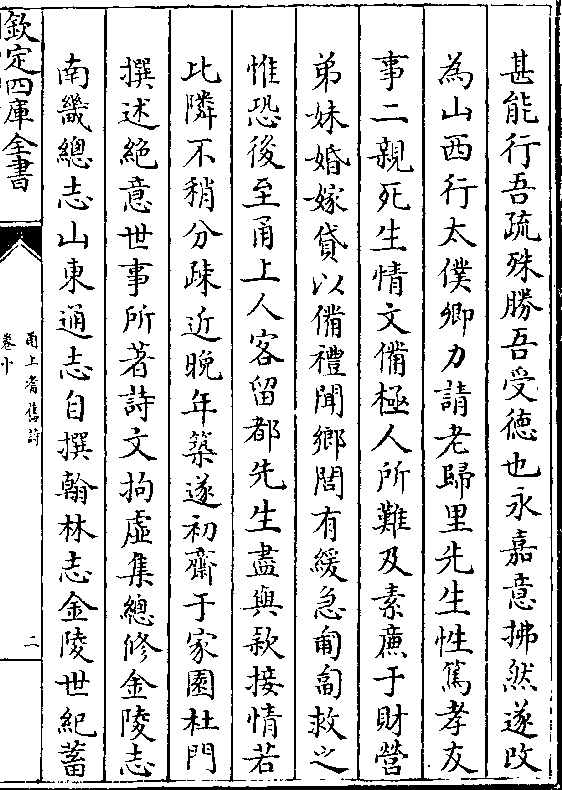 甚能行吾疏殊勝吾受徳也永嘉意拂然遂改
為山西行太僕卿力請老歸里先生性篤孝友
事二親死生情文備極人所難及素亷于財營
弟妹婚嫁貸以備禮聞鄉閭有緩急匍匐救之
惟恐後至甬上人客留都先生盡與款接情若
比隣不稍分疎近晚年築遂初齋于家園杜門
撰述絶意世事所著詩文拘虚集總修金陵志
南畿總志山東通志自撰翰林志金陵世紀蓄
欽定四庫全書
甬上耆舊詩
卷十
二